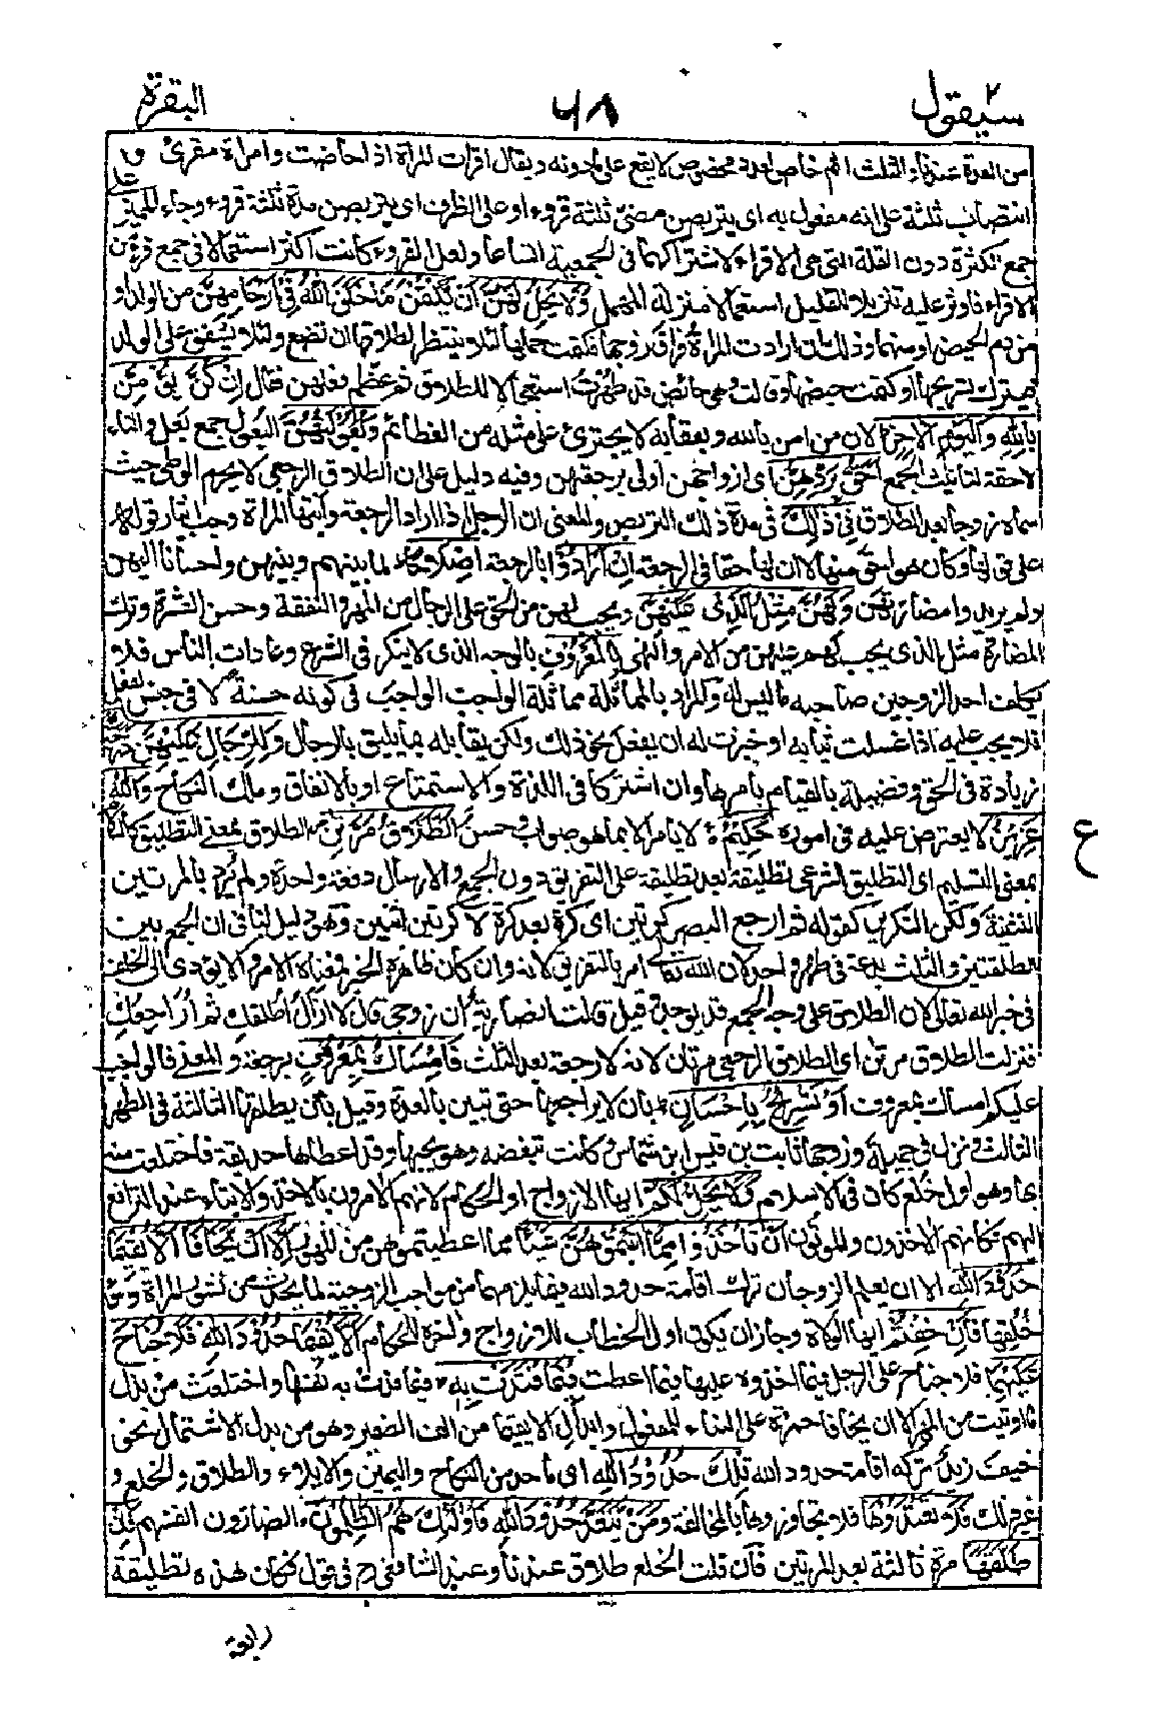 سيقول ٢
٦٨
البقرة
من العدة عندنا والثلث اسم خاص لعدد مخصوص لا يقع على ما دونه ويقال اقرات المراة اذا حاضت وامراة مقرئ و
انتصاب ثلثة على انه مفعول به اى يتربصن مضى ثلثة قروء او على الظرف اى يتربصن مدة ثلثة قروء وجاء المميز
جمع الكثرة دون القلة التى هى الاقراء لاشتراكهما فى الجمعية اتساعا ولعل القروء كانت اكثر استعمالا فى جمع قرء من
الاقراء فاوثر عليه تنزيلا للقليل استعمالا منزلة المهمل وَلَا يَحِلُّ لَهُنَّ اَنْ يَّكْتُمْنَ مَا خَلَقَ اللّٰهُ فِيْ اَرْحَامِهِنَّ من الولد او
من دم الحيض او منهما وذلك اذا ارادت المراة فراق زوجها فكتمت حملها لئلا ينتظر لطلاقها ان تضع ولئلا يشفق على الولد
فيترك تسريحها او كتمت حيضها وقالت وهى حائض قد طهرت استعجالا للطلاق ثم عظم فعلهن فقال اِنْ كُنَّ يُؤْمِنَّ
بِاللّٰهِ وَالْيَوْمِ الْاٰخِرِ لان من امن بالله وبعقابه لا يجترئ على مثله من العظائم وَبُعُوْلَتُهُنَّ البعول جمع بعل والتاء
لاحقة لتانيث الجمع اَحَقُّ بِرَدِّهِنَّ اى ازواجهن اولى برجعتهن وفيه دليل على ان الطلاق الرجعى لا يحرم الوطى حيث
سماه زوجا بعد الطلاق فِيْ ذٰلِكَ فى مدة ذلك التربص والمعنى ان الرجل اذا اراد الرجعة وابتها المراة وجب ايثار قوله
على قولها وكان هو احق منها لا ان لها حقا فى الرجعة اِنْ اَرَادُوْٓا بالرجعة اِصْلَاحًا لما بينهم وبينهن واحسانا اليهن
ولم يريدوا مضارتهن وَلَهُنَّ مِثْلُ الَّذِيْ عَلَيْهِنَّ ويجب لهن من الحق على الرجال من المهر والنفقة وحسن العشرة وترك
المضارة مثل الذى يجب لهم عليهن من الامر والنهى بِالْمَعْرُوْفِ بالوجه الذى لا ينكر فى الشرع وعادات الناس فلا
يكلف احد الزوجين صاحبه ما ليس له والمراد بالمماثلة مماثلة الواجب الواجب فى كونه حسنة لا فى جنس الفعل
فلا يجب عليه اذا غسلت ثيابه او خبزت له ان يفعل نحو ذلك ولكن يقابله بما يليق بالرجال وَلِلرِّجَالِ عَلَيْهِنَّ دَرَجَةٌ
زيادة فى الحق وفضيلة بالقيام بامرها وان اشتركا فى اللذة والاستمتاع او بالانفاق وملك النكاح وَاللّٰهُ
عَزِيْزٌ لا يعترض عليه فى اموره حَكِيْمٌ لا يامر الا بما هو صواب وحسن اَلطَّلَاقُ مَرَّتٰنِ الطلاق بمعنى التطليق كالسلام
بمعنى التسليم اى التطليق الشرعى تطليقة بعد تطليقة على التفريق دون الجمع والارسال دفعة واحدة ولم يرد بالمرتين
التثنية ولكن التكرير كقوله ثم ارجع البصر كرتين اى كرة بعد كرة لا كرتين اثنتين وهو دليل لنا فى ان الجمع بين
الطلقتين والثلث بدعة فى طهر واحد لان الله تعالى امر بالتفريق لانه وان كان ظاهره الخبر فمعناه الامر والا يؤدى الى الخلف
فى خبر الله تعالى لان الطلاق على وجه الجمع قد يوجد وقيل قالت انصارية ان زوجى قال لا ازال اطلقك ثم اراجعك
فنزلت الطلاق مرتن اى الطلاق الرجعى مرتان لانه لا رجعة بعد الثلث فَاِمْسَاكٌۢ بِمَعْرُوْفٍ برجعة والمعنى فالواجب
عليكم امساك بمعروف اَوْ تَسْرِيْحٌۢ بِاِحْسَانٍ بان لا يراجعها حتى تبين بالعدة وقيل بان يطلقها الثالثة فى الطهر
الثالث ونزل فى جميلة وزوجها ثابت بن قيس ابن شماس وكانت تبغضه وهو يحبها وقد اعطاها حديقة فاختلعت منه
بها وهو اول خلع كان فى الاسلام وَلَا يَحِلُّ لَكُمْ ايها الازواج او الحكام لانهم الامرون بالاخذ والايتاء عند الترافع
اليهم فكانهم الاخذون والموتون اَنْ تَاْخُذُوْا مِمَّآ اٰتَيْتُمُوْهُنَّ شَيْئًا مما اعطيتموهن من المهور اِلَّآ اَنْ يَّخَافَآ اَلَّا يُقِيْمَا
حُدُوْدَ اللّٰهِ الا ان يعلم الزوجان ترك اقامة حدود الله فيما يلزمهما من مواجب الزوجية لما يحدث من نشوز المراة وسوء
خلقها فَاِنْ خِفْتُمْ ايها الولاة وجاز ان يكون اول الخطاب للازواج واخره للحكام اَلَّا يُقِيْمَا حُدُوْدَ اللّٰهِ فَلَا جُنَاحَ
عَلَيْهِمَا فلا جناح على الرجل فيما اخذ ولا عليها فيما اعطت فِيْمَا افْتَدَتْ بِهٖ فيما فدت به نفسها واختلعت من بذل
ما اوتيت من المهر الا ان يخافا حمزة على البناء للمفعول وابدال الا يقيما من الف الضمير وهو من بدل الاشتمال نحو
خيف زيد تركه اقامة حدود الله تِلْكَ حُدُوْدُ اللّٰهِ اى ما حد من النكاح واليمين والايلاء والطلاق والخلع و
غير ذلك فَلَا تَعْتَدُوْهَا فلا تجاوزوها بالمخالفة وَمَنْ يَّتَعَدَّ حُدُوْدَ اللّٰهِ فَاُولٰٓئِكَ هُمُ الظّٰلِمُوْنَ الضارون انفسهم فَاِنْ
طَلَّقَهَا مرة ثالثة بعد المرتين فان قلت الخلع طلاق عندنا وعند الشافعى رح فى قول فكان هذه تطليقة
ع
رابعة